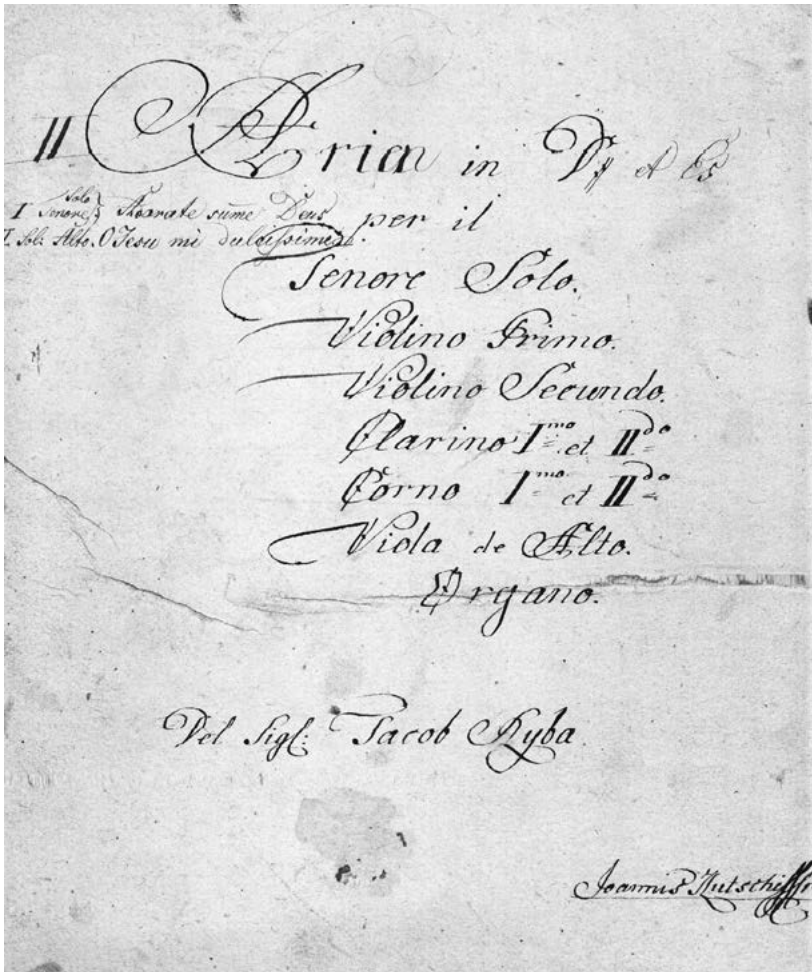 II Aria in D♯ et Es
Solo
I Tenore Adorate sume Deus
I. Sol: Alto. O Jesu mi dulcissime.
per il
Tenore Solo.
Violino Primo.
Violino Secundo.
Clarino Imo et IIdo
Corno Imo et IIdo
Viola de Alto.
Organo.
Del Sigl: Jacob Ryba
Joannis